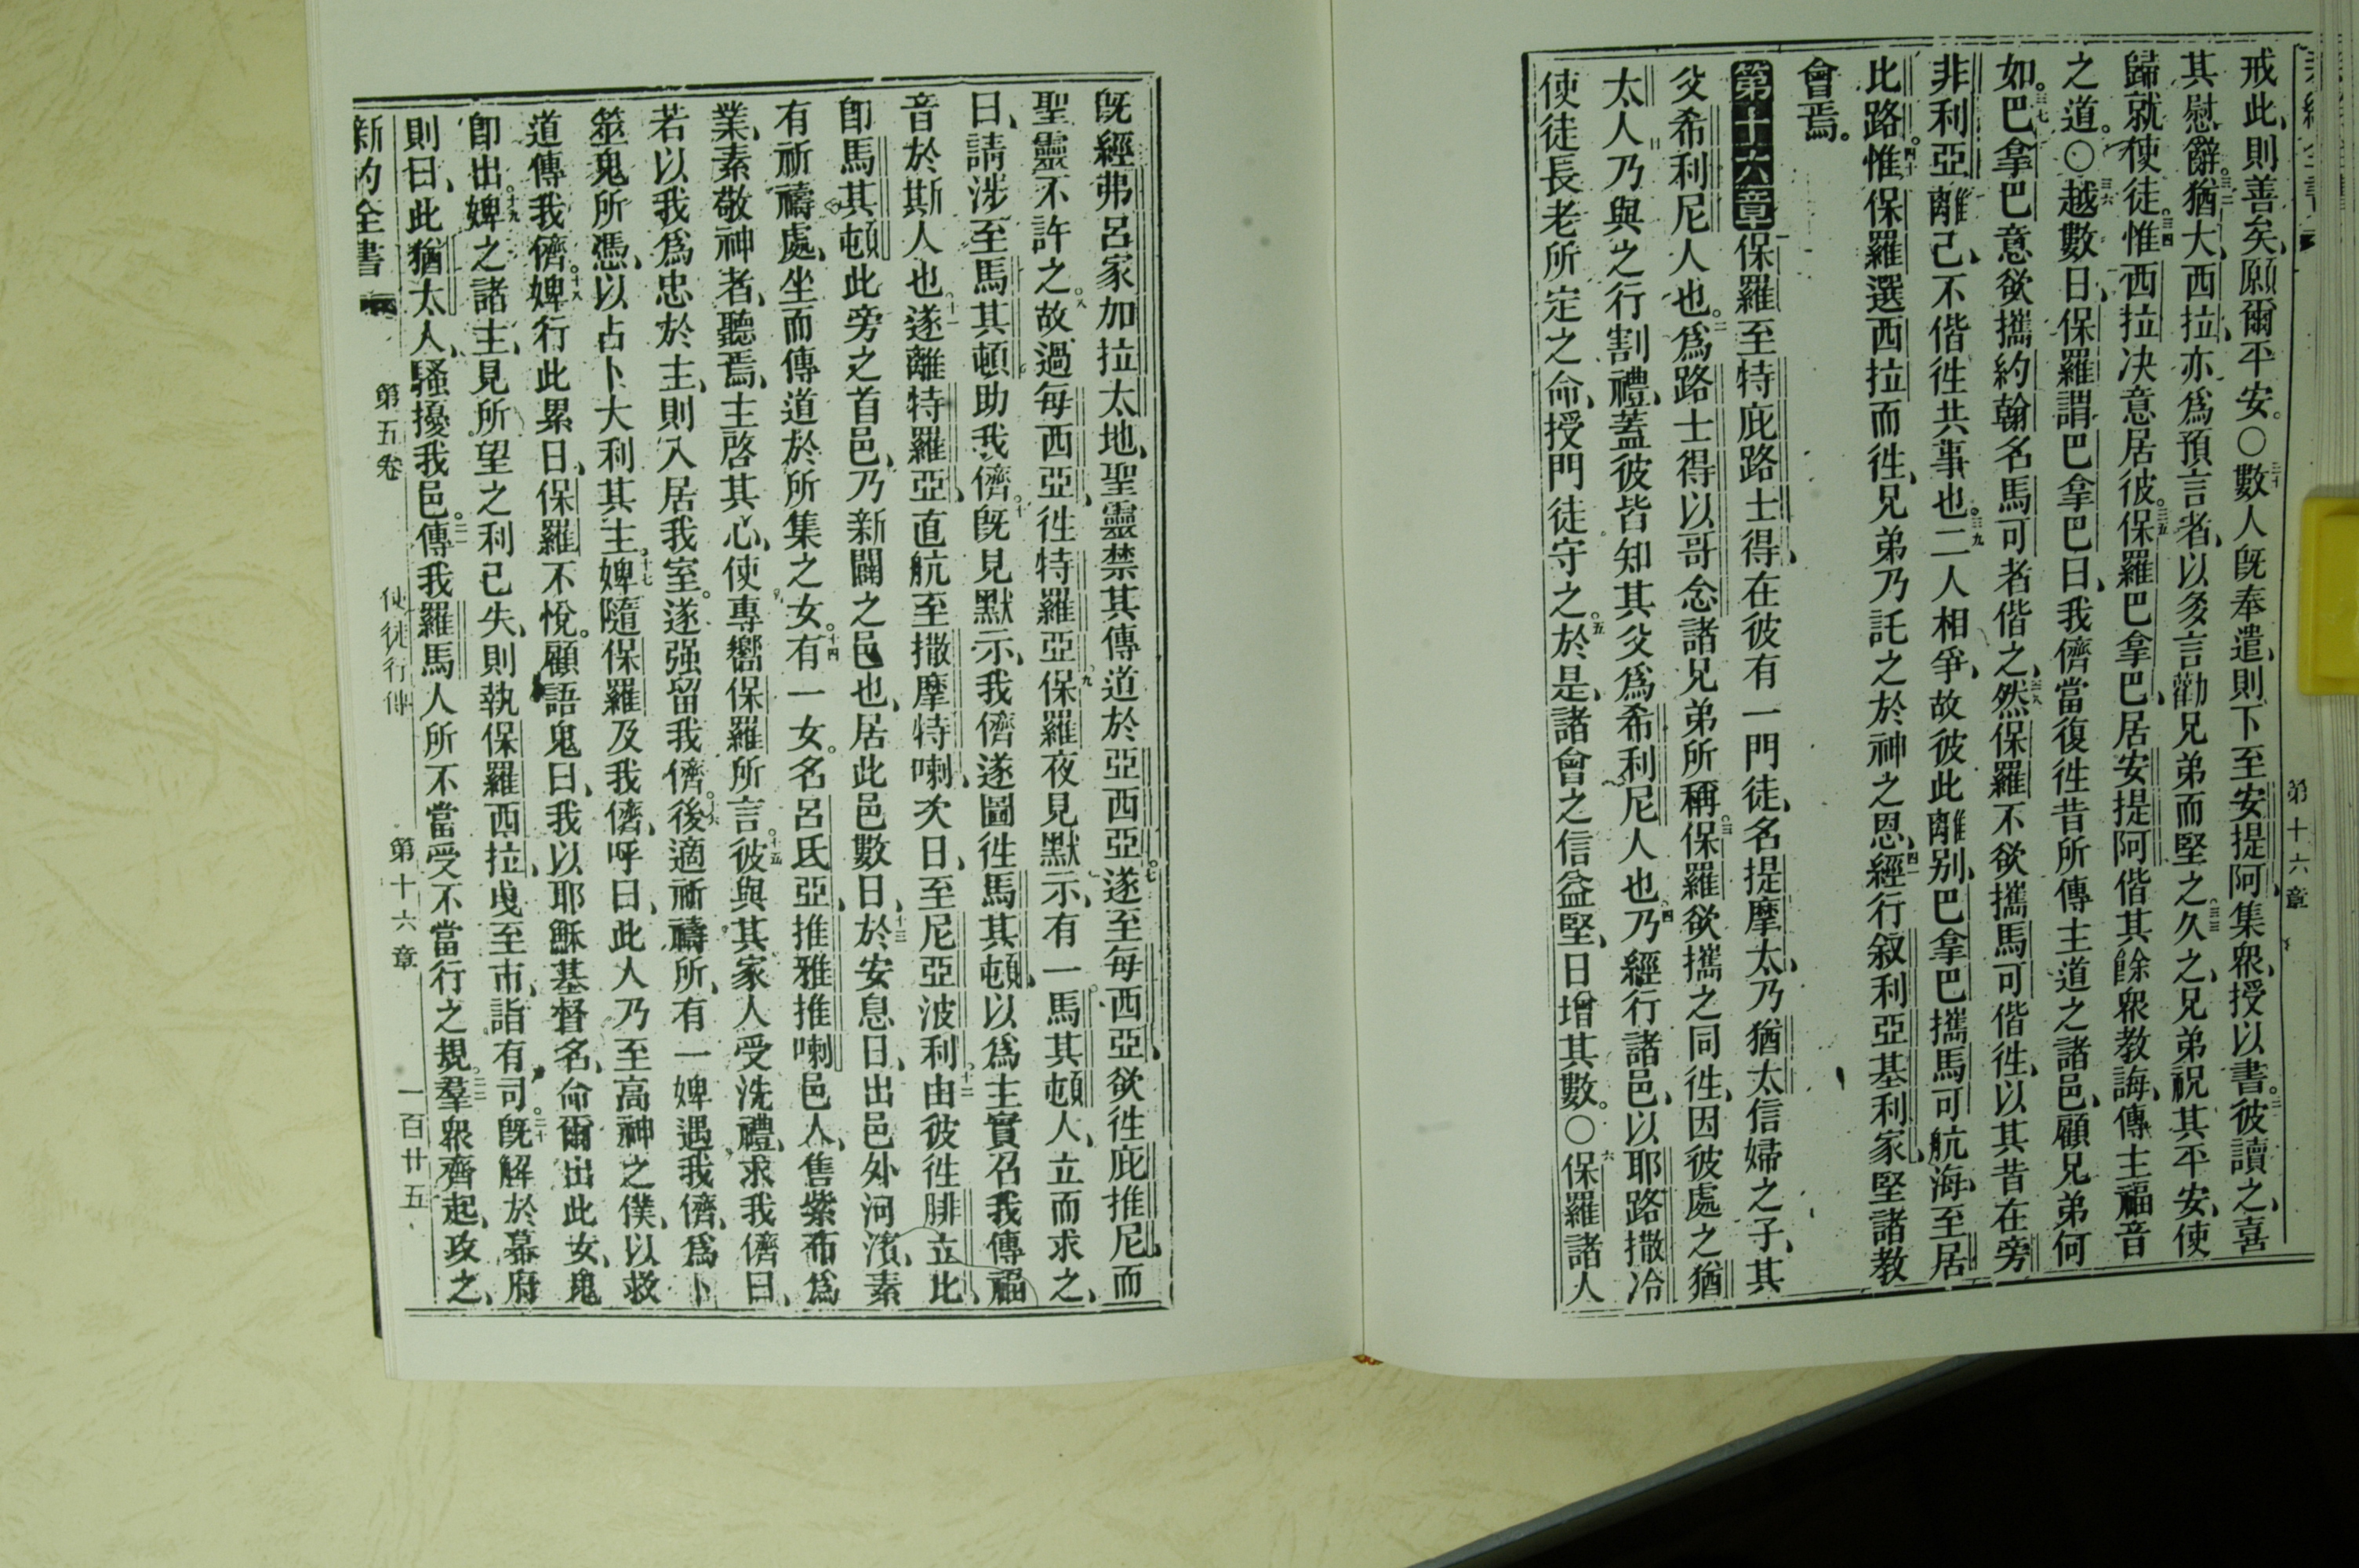 第十六章
戒此、則善矣、願爾平安。〇三十數人旣奉遣、則下至安提阿、集衆、授以書。三一彼讀之、喜
其慰辭。三二猶大、西拉、亦爲預言者、以多言勸兄弟而堅之。三三久之、兄弟祝其平安、使
歸就使徒。三四惟西拉決意居彼。三五保羅巴拿巴、居安提阿偕其餘衆教誨、傳主福音
之道。〇三六越數日、保羅謂巴拿巴曰、我儕當復徃昔所傳主道之諸邑、顧兄弟何
如。三七巴拿巴意欲攜約翰名馬可者偕之、三八然保羅不欲攜馬可偕徃、以其昔在旁
非利亞離己、不偕徃共事也。三九二人相爭、故彼此離別、巴拿巴攜馬可航海、至居
比路。四十惟保羅選西拉而徃、兄弟乃託之於神之恩、四一經行叙利亞基利家、堅諸教
會焉。
第十六章 一保羅至特庇路士得、在彼有一門徒、名提摩太、乃猶太信婦之子、其
父希利尼人也。二爲路士得以哥念諸兄弟所稱。三保羅欲攜之同徃、因彼處之猶
太人、乃與之行割禮、蓋彼皆知其父爲希利尼人也。四乃經行諸邑、以耶路撒冷
使徒長老所定之命、授門徒守之。五於是、諸會之信益堅、日增其數。〇六保羅諸人
旣經弗呂家加拉太地、聖靈禁其傳道於亞西亞。七遂至每西亞、欲徃庇推尼、而
聖靈不許之。八故過每西亞、徃特羅亞。九保羅夜見默示、有一馬其頓人、立而求之、
曰、請涉至馬其頓助我儕。十旣見默示、我儕遂圖徃馬其頓、以爲主實召我傳福
音於斯人也。十一遂離特羅亞、直航至撒摩特喇、次日、至尼亞波利。十二由彼徃腓立比、
卽馬其頓此旁之首邑、乃新闢之邑也、居此邑數日、十三於安息日、出邑外河濱、素
有祈禱處、坐而傳道於所集之女。十四有一女。名呂氐亞、推雅推喇邑人、售紫布爲
業、素敬神者、聽焉、主啓其心、使專嚮保羅所言。十五彼與其家人受洗禮、求我儕曰、
若以我爲忠於主、則入居我室。遂强留我儕。十六後適祈禱所、有一婢遇我儕、爲卜
筮鬼所憑、以占卜大利其主、十七婢隨保羅及我儕、呼曰、此人乃至高神之僕、以救
道傳我儕。十八婢行此累日、保羅不悅。顧語鬼曰、我以耶穌基督名、命爾出此女、鬼
卽出。十九婢之諸主、見所望之利已失、則執保羅西拉、曳至市、詣有司。二十旣解於幕府
則曰、此猶太人、騷擾我邑。二一傳我羅馬人所不當受不當行之規。二二羣衆齊起、攻之、
新約全書 第五卷 使徒行傳 第十六章 一百廿五